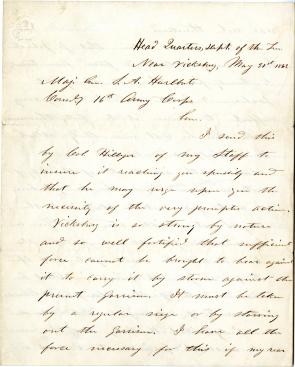 Head Quarters, Dept. of the Ten
Near Vicksburg, May 31st 1863
Maj. Gen. S. A. Hurlbut
Comd'g 16th Army Corps
Gen.
I send this
by Col Hillyer of my Staff to
insure it reaching you speedily and
that he may urge upon you the
necessity of the very promptest action.
Vicksburg is so strong by nature
and so well fortified that sufficient
force cannot be brought to bear against
it to carry it by storm against the
present Garrison. It must be taken
by a regular siege or by starving
out the Garrison. I have all the
force necessary for this if my rear